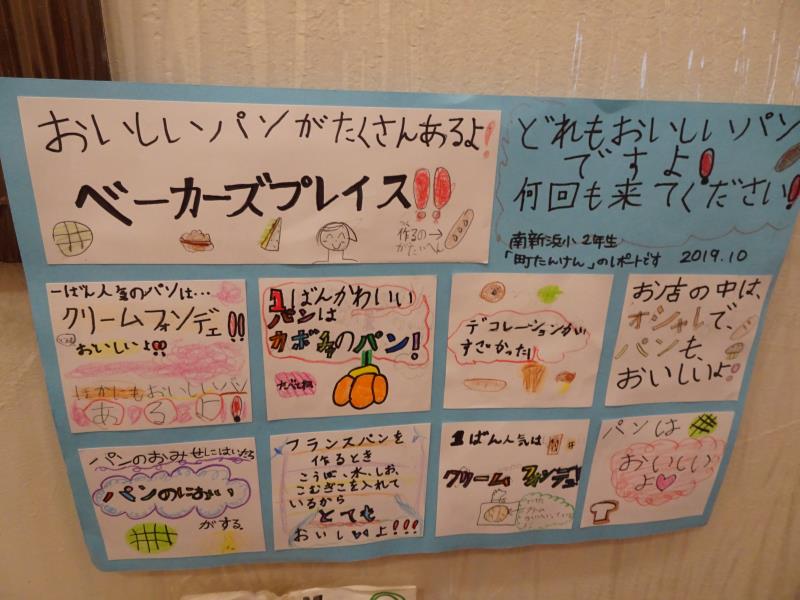 おいしいパンがたくさんあるよ!
ベーカーズプレイス!!
作るの→
がたいへん
どれもおいしいパン
ですよ!
何回も来てください!
南新浜小2年生
「町たんけん」のレポートです 2019.10
一ばん人気のパンは…
クリームフォンデュ!!
おいしいよ!!
ほかにもおいしいパン
あるよ!
1ばんかわいい
パンは
カボチャのパン!
たべてね
デコレーションが
すごかった!
お店の中は、
オシャレで、
パンも、
おいしいよ!
パンのおみせにはいったら
パンのにおい
がする。
フランスパンを
作るとき
こうぼ、水、しお、
こむぎこを入れて
いるから
とても
おいしいよ!!!
1ばん人気は
クリームフォンデュ!
パンは
おいしい
よ♡